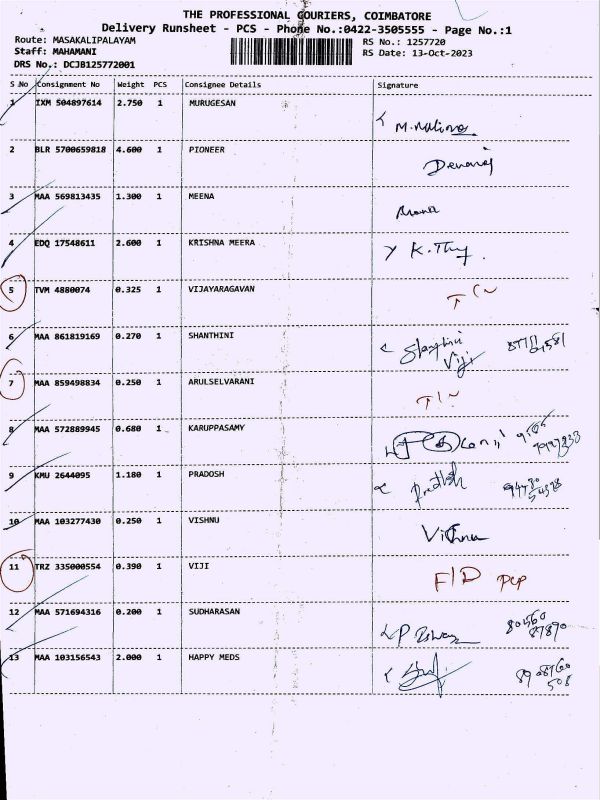 THE PROFESSIONAL COURIERS, COIMBATORE
Delivery Runsheet - PCS - Phone No.:0422-3505555 - Page No.:1
Route: MASAKALIPALAYAM
RS No.: 1257720
Staff: MAHAMANI
RS Date: 13-Oct-2023
DRS No.: DCJB125772001
S No Consignment No Weight PCS Consignee Details Signature
1 IXM 504897614 2.750 1 MURUGESAN
2 BLR 5700659818 4.600 1 PIONEER
3 MAA 569813435 1.300 1 MEENA
4 EDQ 17548611 2.600 1 KRISHNA MEERA
5 TVM 4880074 0.325 1 VIJAYARAGAVAN
6 MAA 861819169 0.270 1 SHANTHINI Shanthini
Viji
7 MAA 859498834 0.250 1 ARULSELVARANI
8 MAA 572889945 0.680 1 KARUPPASAMY
9 KMU 2644095 1.180 1 PRADOSH
10 MAA 103277430 0.250 1 VISHNU Vishnu
11 TRZ 335000554 0.390 1 VIJI F/D PCP
12 MAA 571694316 0.200 1 SUDHARASAN
13 MAA 103156543 2.000 1 HAPPY MEDS